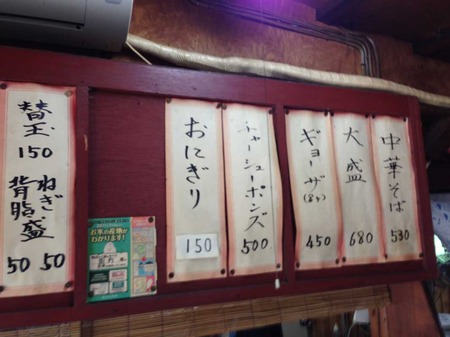 中華そば
530
大盛
680
ギョーザ(8ヶ)
450
チャーシューポンズ
500
おにぎり
150
替玉
150
ねぎ・背脂盛
50 50
お米の産地が
わかります!